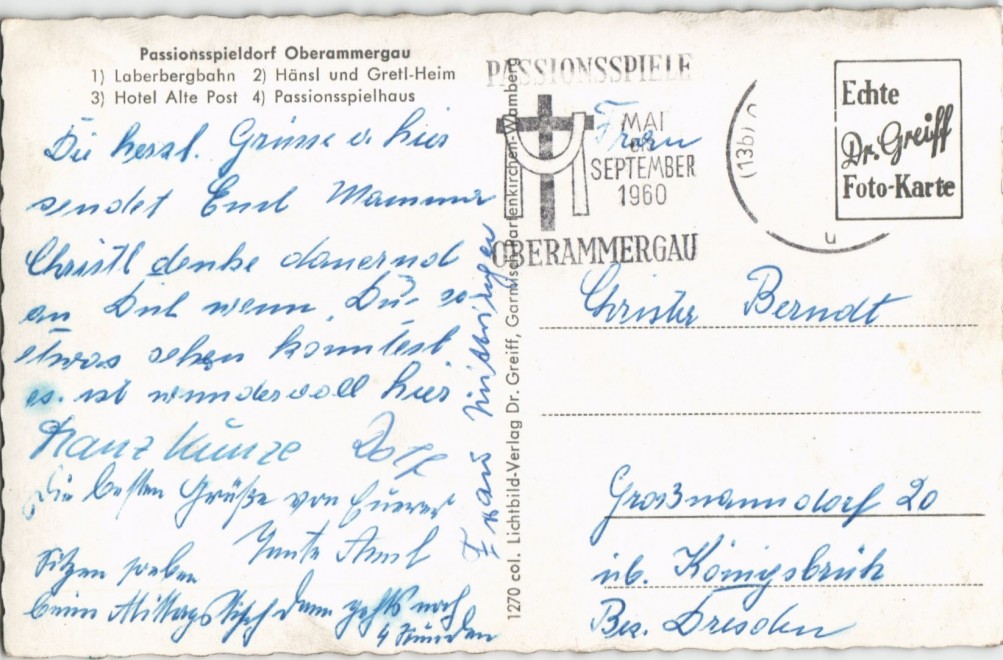 Passionsspieldorf Oberammergau
1) Laberbergbahn 2) Hänsl und Gretl-Heim
3) Hotel Alte Post 4) Passionsspielhaus
Die herzl. Grüsse v. hier
sendet Euch
Christl denke dauernd
an Dich wenn Du so
etwas sehen könntest
es ist wundervoll hier
Kunze
Die besten Grüße von Euerer
Tante
Sitzen soeben
beim Mittagstisch dann gehts noch
4 Stunden
Frau
1270 col. Lichtbild-Verlag Dr. Greiff, Garmisch-Partenkirchen-Wamberg
PASSIONSSPIELE
MAI
BIS
SEPTEMBER
1960
OBERAMMERGAU
(13b)
u
Echte
Dr. Greiff
Foto-Karte
Frau
Berndt
Großnaundorf 20
üb. Königsbrück
Bez. Dresden